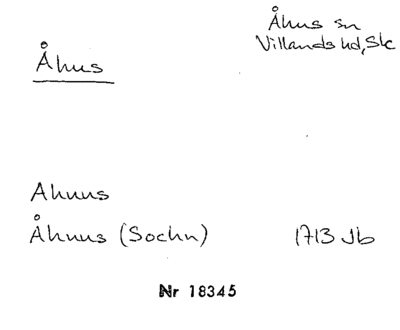 Åhus sn
Villands hd, Sk
Åhus
Ahuus
Åhuus (Sochn) 1713 Jb
Nr 18345